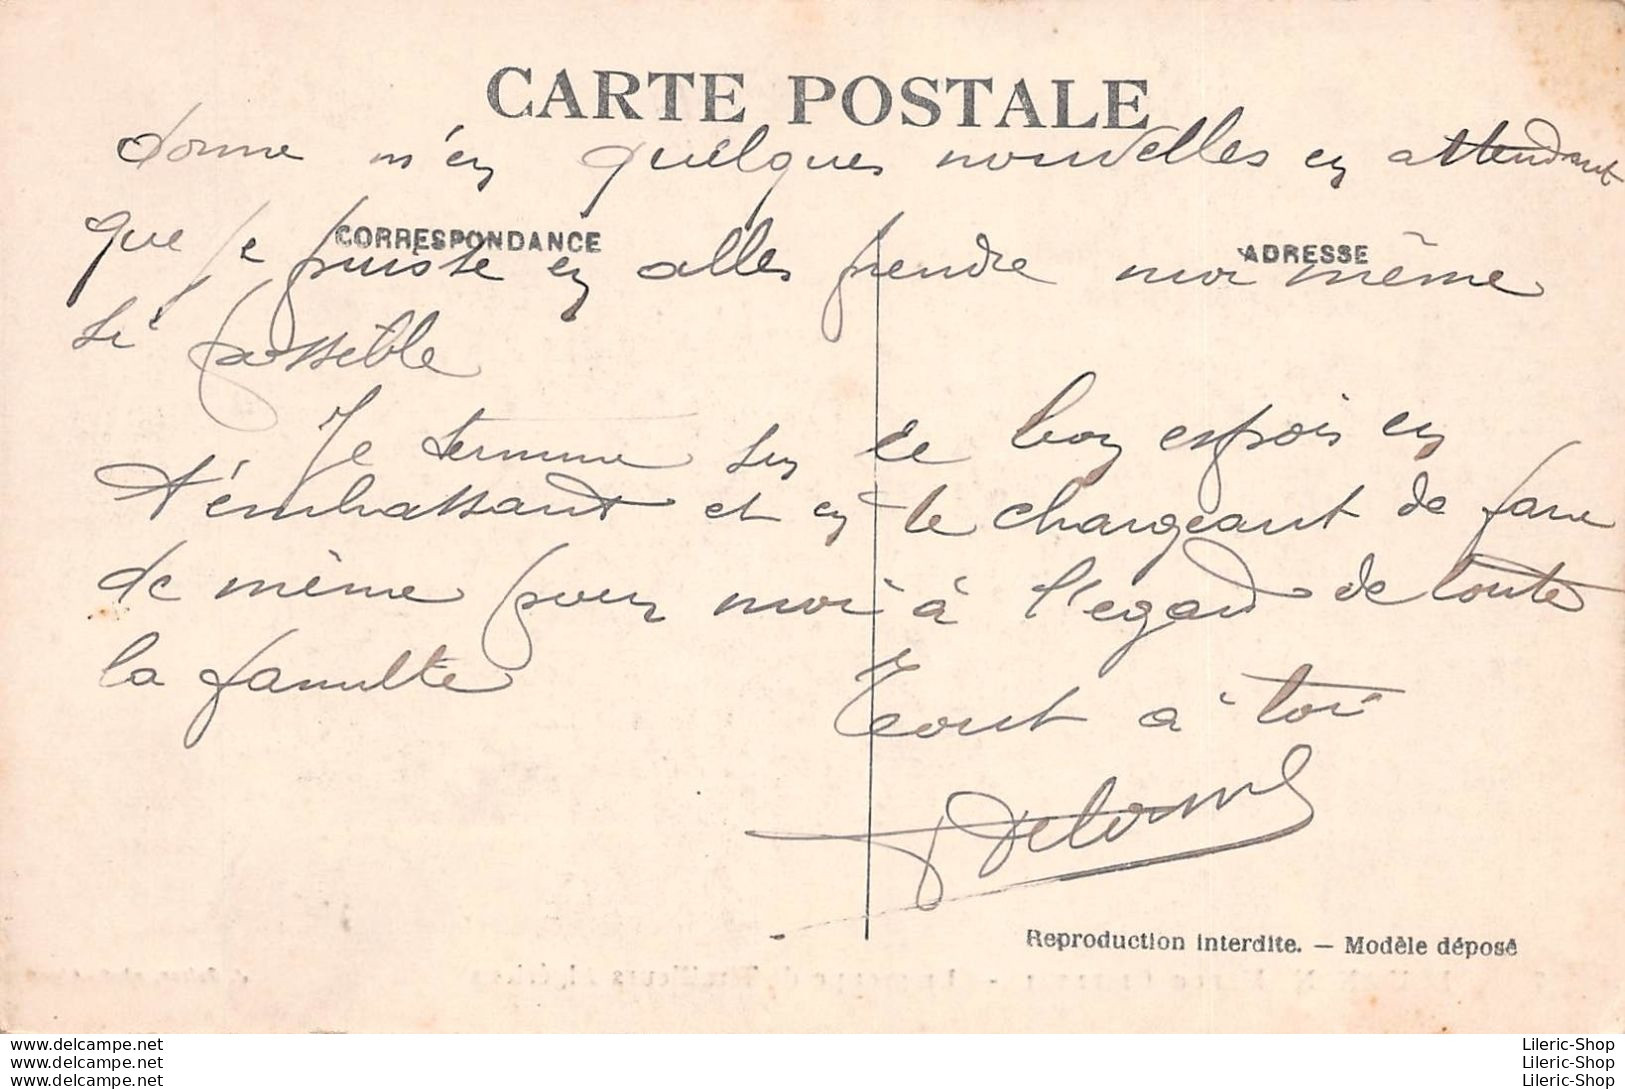 CARTE POSTALE
donne m'en quelques nouvelles en attendant
CORRESPONDANCE
ADRESSE
que je puisse en aller prendre moi même
si possible
Je termine sur ce bon espoir en
t'embrassant et en te chargeant de faire
de même pour moi à l'egard de toute
la famille
Tout à toi
Delorme
Reproduction interdite. — Modèle déposé
www.delcampe.net
www.delcampe.net
www.delcampe.net
Lileric-Shop
Lileric-Shop
Lileric-Shop